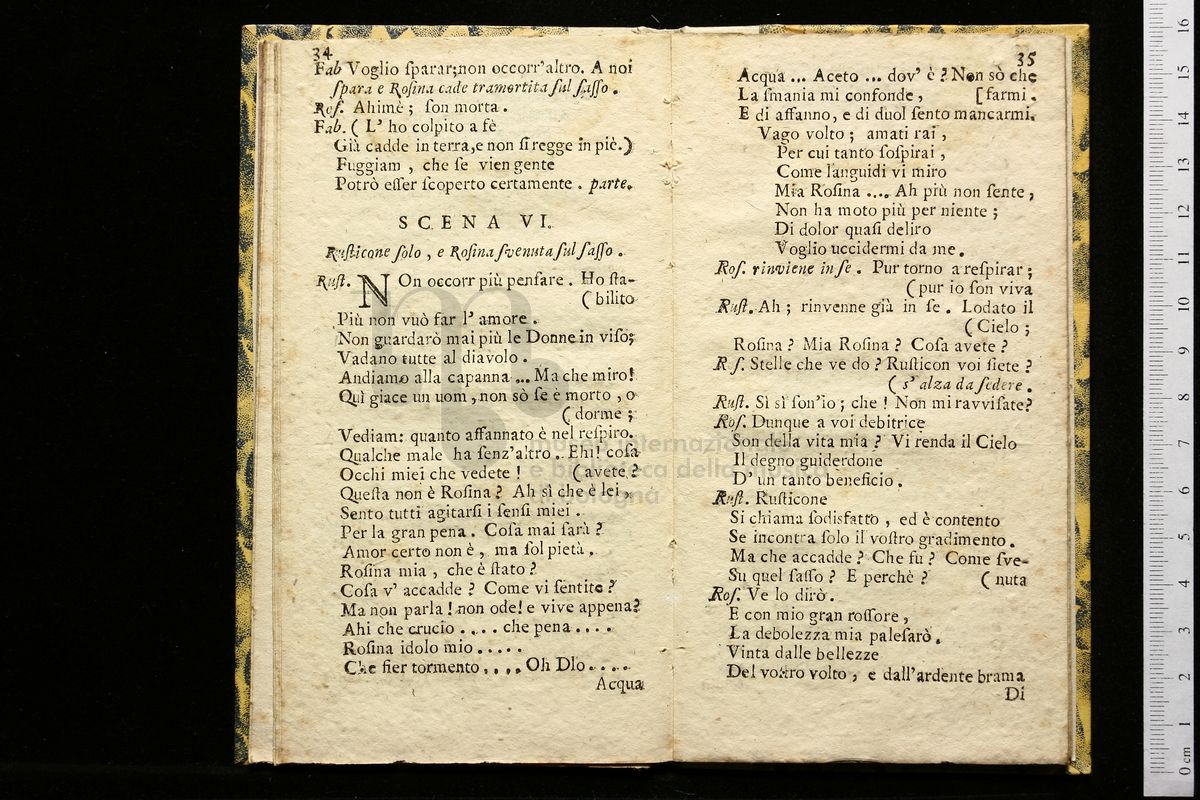 34
Fab Voglio ſparar;non occorr'altro. A noi
ſpara e Roſina cade tramortita ſul ſaſſo.
Roſ. Ahimè ; ſon morta.
Fab. ( L' ho colpito a fè
Già cadde in terra,e non ſi regge in piè.)
Fuggiam , che ſe vien gente
Potrò eſſer ſcoperto certamente. parte.
SCENA VI.
Ruſticone ſolo , e Roſina ſvenuta ſul ſaſſo.
Ruſt. NOn occorr più penſare. Ho ſta-
( bilito
Più non vuò far l' amore.
Non guardarò mai più le Donne in viſo;
Vadano tutte al diavolo.
Andiamo alla capanna ... Ma che miro!
Quì giace un uom , non sò ſe è morto , o
( dorme ;
Vediam: quanto affannato è nel reſpiro.
Qualche male ha ſenz'altro.. Ehi! coſa
Occhi miei che vedete ! ( avete ?
Queſta non è Roſina ? Ah sì che è lei,
Sento tutti agitarſi i ſenſi miei.
Per la gran pena. Coſa mai ſarà ?
Amor certo non è , ma ſol pietà.
Roſina mia , che è ſtato ?
Coſa v' accadde ? Come vi ſentite ?
Ma non parla ! non ode! e vive appena?
Ahi che crucio .... che pena ....
Roſina idolo mio .....
Che fier tormento .... Oh Dio .....
Acqua
35
Acqua ... Aceto ... dov' è ? Non sò che
La ſmania mi confonde , [ farmi.
E di affanno, e di duol ſento mancarmi.
Vago volto ; amati rai ,
Per cui tanto ſoſpirai ,
Come languidi vi miro
Mia Roſina .... Ah più non ſente ,
Non ha moto più per niente ;
Di dolor quaſi deliro
Voglio uccidermi da me.
Roſ. rinviene in ſe. Pur torno a reſpirar ;
( pur io ſon viva
Ruſt. Ah ; rinvenne già in ſe. Lodato il
( Cielo ;
Roſina ? Mia Roſina ? Coſa avete ?
R ſ. Stelle che ve do ? Ruſticon voi ſiete ?
( s' alza da ſedere.
Ruſt. Sì sì ſon'io ; che ! Non mi ravviſate?
Roſ. Dunque a voi debitrice
Son della vita mia ? Vi renda il Cielo
Il degno guiderdone
D' un tanto beneficio.
Ruſt. Ruſticone
Si chiama ſodisfatto , ed è contento
Se incontra ſolo il voſtro gradimento.
Ma che accadde ? Che fu ? Come ſve-
Su quel ſaſſo ? E perchè ? ( nuta
Roſ. Ve lo dirò.
E con mio gran roſſore ,
La debolezza mia paleſarò.
Vinta dalle bellezze
Del voſtro volto , e dall'ardente brama
Di
museo internazionale
e biblioteca della musica
di bologna
0 cm 1 2 3 4 5 6 7 8 9 10 11 12 13 14 15 16